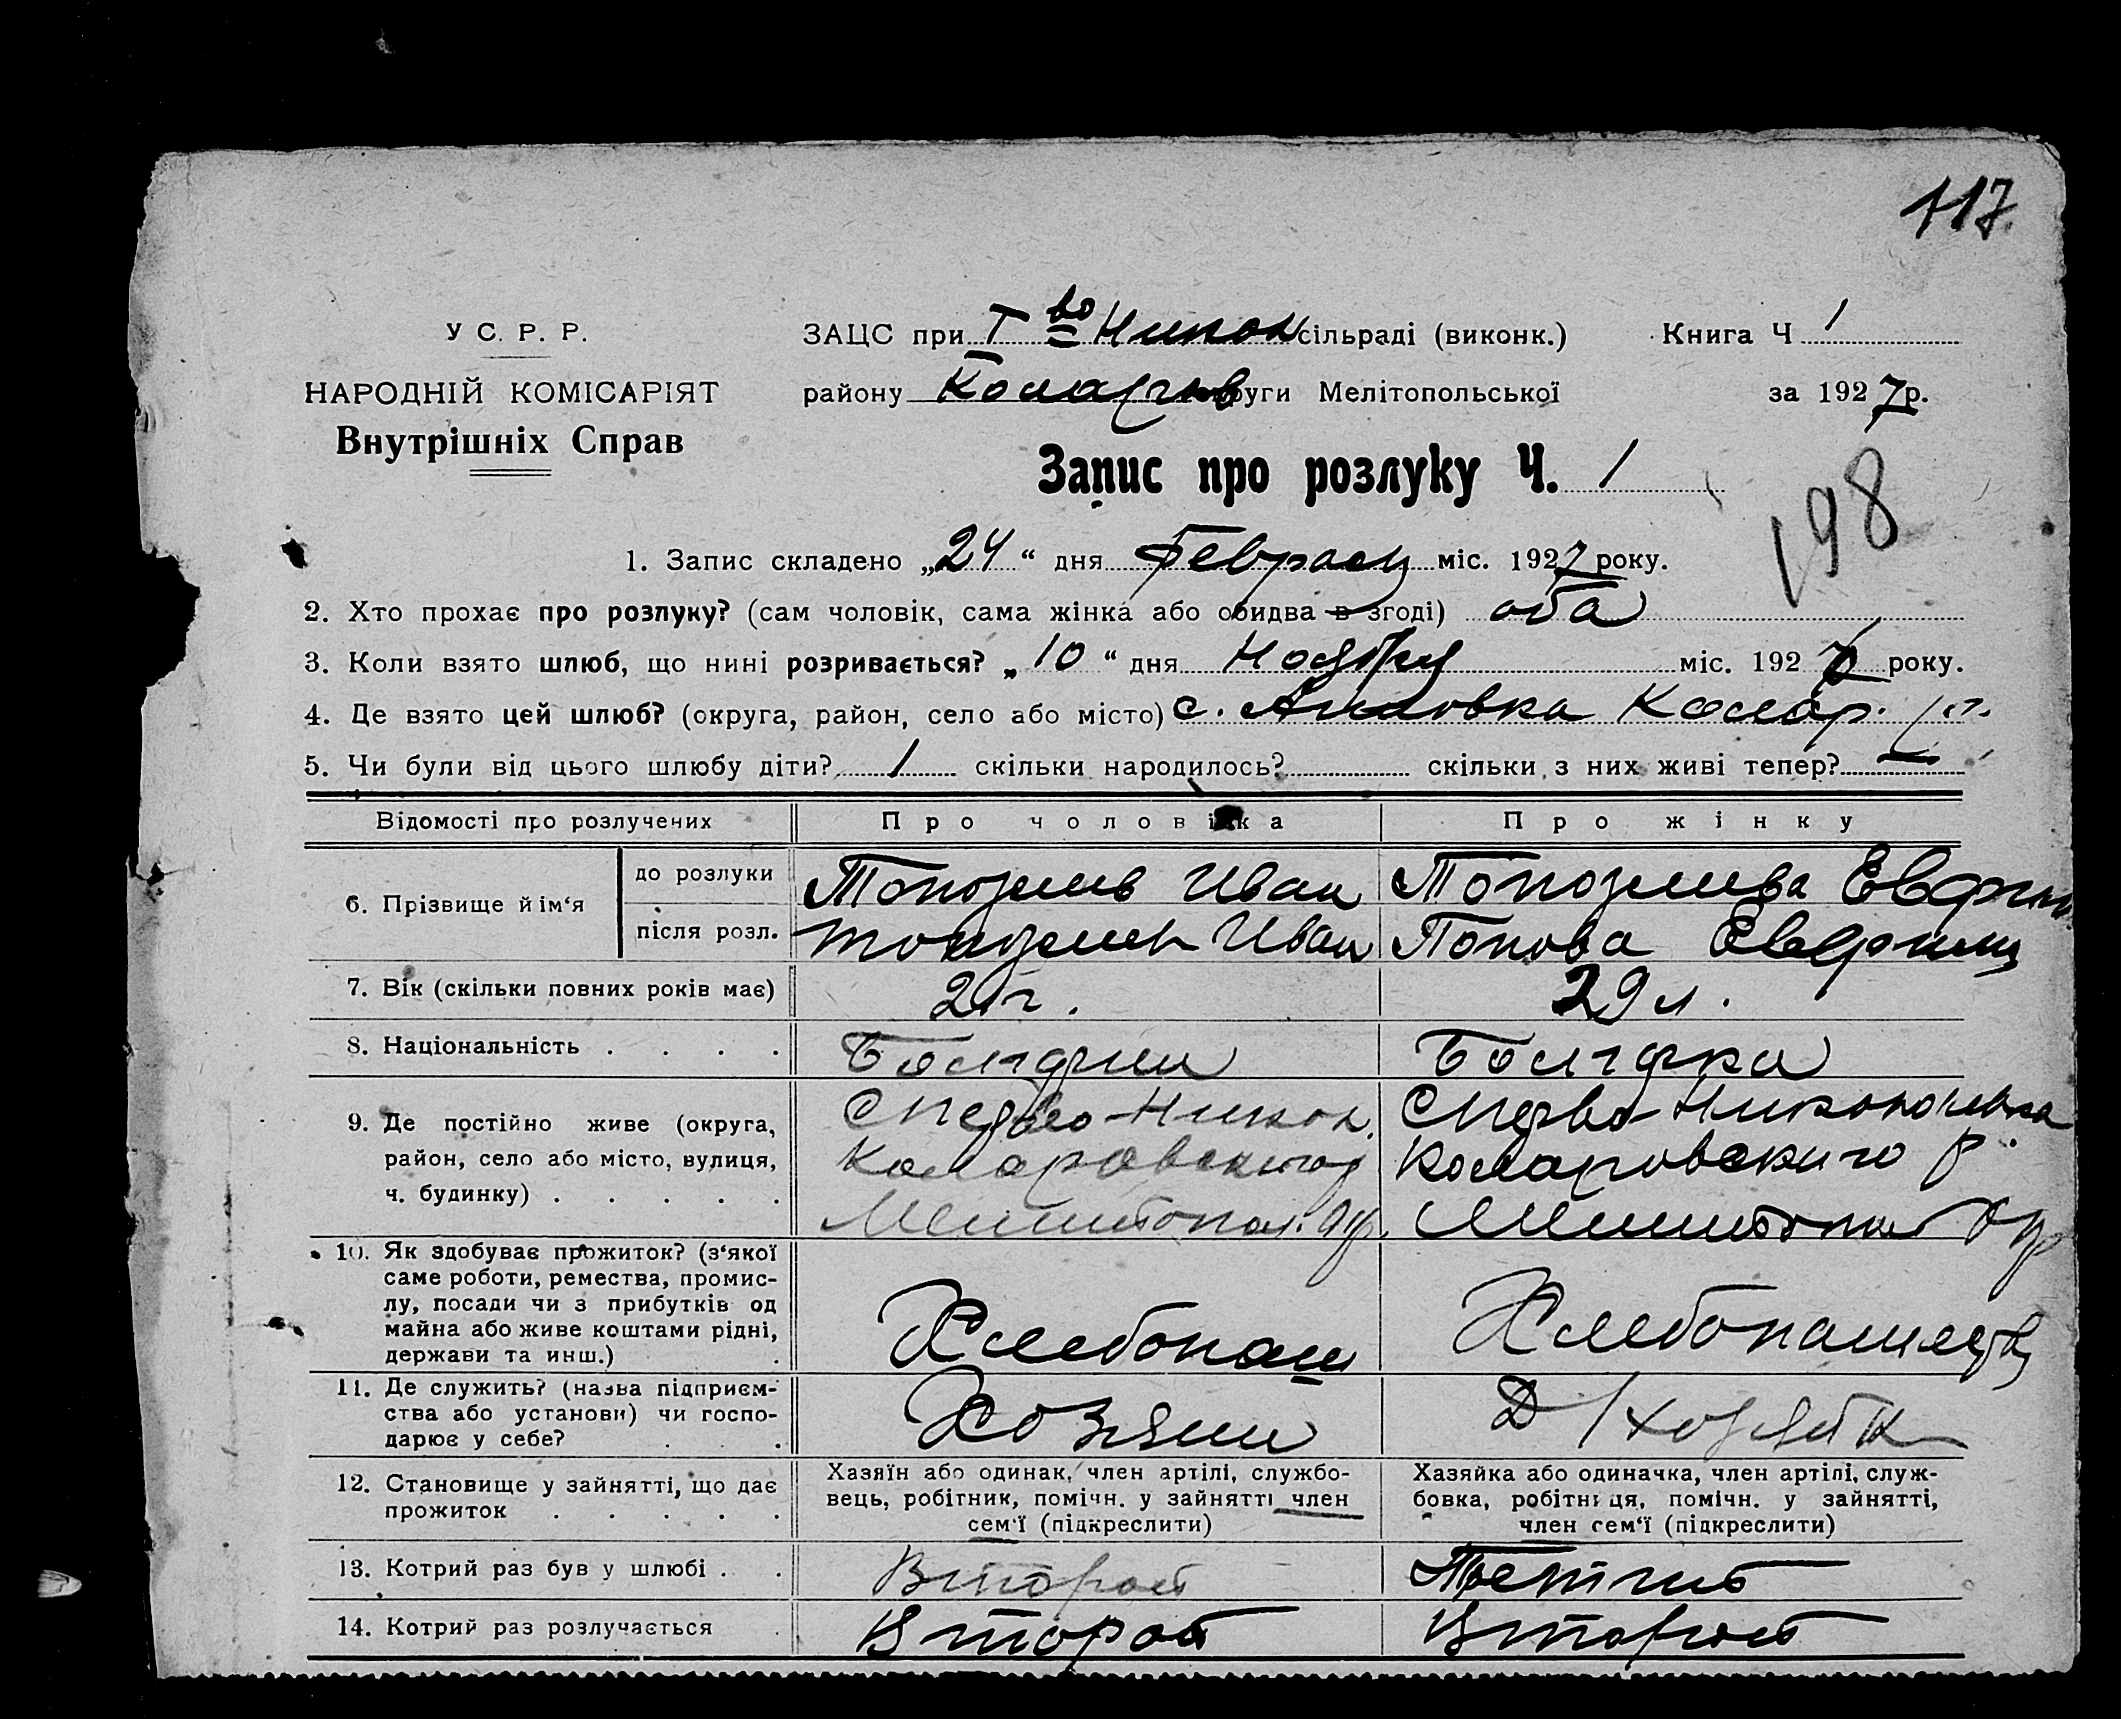 117
У С. Р. Р.
НАРОДНІЙ КОМІСАРІЯТ
Внутрішніх Справ
ЗАЦС при Т во Никон сільраді (виконк.)
Книга Ч 1
району Коларов округи Мелітопольської
за 1927 р.
Запис про розлуку Ч. 1
198
1. Запис складено „24“ дня Февраля міс. 1927 року.
2. Хто прохає про розлуку? (сам чоловік, сама жінка або обидва в згоді) оба
3. Коли взято шлюб, що нині розривається? „10“ дня Ноября міс. 1926 року.
4. Де взято цей шлюб? (округа, район, село або місто) с. Анновка Колар. р.
5. Чи були від цього шлюбу діти? 1 скільки народилось? скільки з них живі тепер? —
Відомості про розлучених
Про чоловіка
Про жінку
6. Прізвище й ім‘я
до розлуки
Иван
після розл.
Иван
Попова
7. Вік (скільки повних років має)
21 г.
29 л.
8. Національність . . . .
Болгарин
Болгарка
9. Де постійно живе (округа,
район, село або місто, вулиця,
ч. будинку) . . . . .
Никон.
Коларовского р
Мелитопол. окр.
Коларовского р.
Мелитопол окр
10. Як здобуває прожиток? (з‘якої
саме роботи, ремества, промис-
лу, посади чи з прибутків од
майна або живе коштами рідні,
держави та инш.) .
Хлебопаш
11. Де служить? (назва підприєм-
ства або установи) чи госпо-
дарює у себе? . . .
Хозяин
Д/хозяйк
12. Становище у зайнятті, що дає
прожиток . . . . .
Хазяїн або одинак, член артілі, службо-
вець, робітник, помічн. у зайнятті член
сем‘ї (підкреслити)
Хазяйка або одиначка, член артілі, служ-
бовка, робітниця, помічн. у зайнятті,
член сем‘ї (підкреслити)
13. Котрий раз був у шлюбі . .
Второй
Третий
14. Котрий раз розлучається .
Второй
Второй